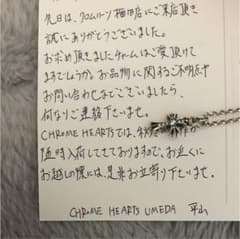 先日は、クロムハーツ梅田店にご来店頂き
誠にありがとうございました。
お求め頂きましたチャームはご愛用頂けて
ますでしょうか。お品物に関するご不明点や
お問い合わせなどございましたら、
何なりとご連絡下さいませ。
CHROME HEARTSでは、
随時入荷してきておりますので、お近くに
お越しの際には、是非お立寄り下さいませ。
CHROME HEARTS UMEDA 平山